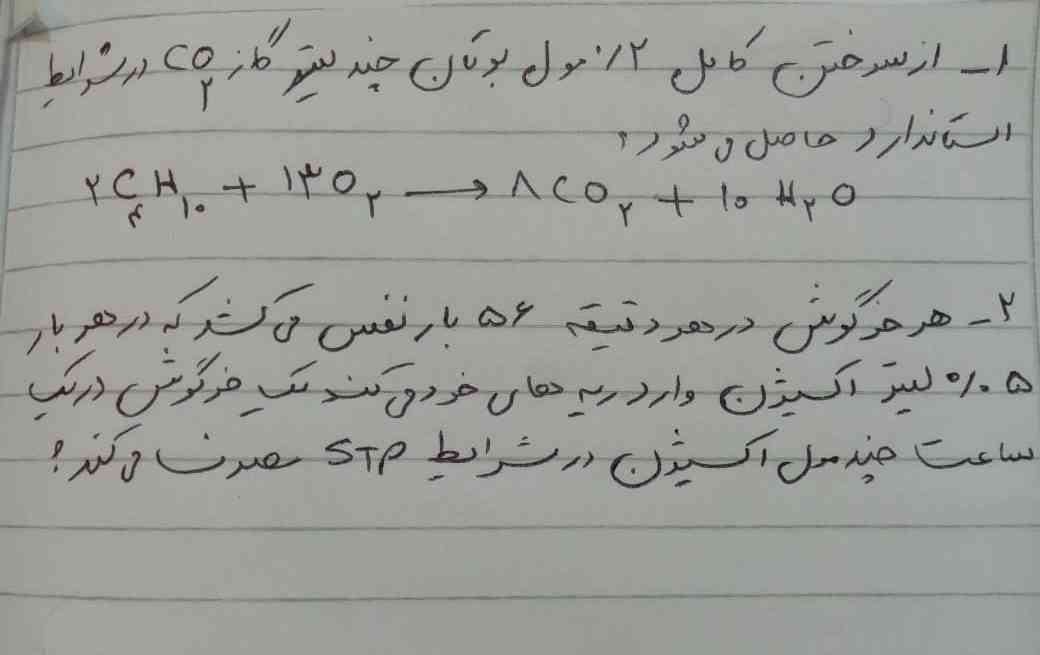 ۱- از سوختن کامل ۰/۲ مول بوتان چند لیتر گاز CO₂ در شرایط
استاندارد حاصل می شود؟
۲C₄H₁₀ + ۱۳O₂ → ۸CO₂ + ۱۰H₂O
۲- هر خرگوش در هر دقیقه ۵۶ بار نفس می کشد که در هر بار
۰/۰۵ لیتر اکسیژن وارد ریه های خود می کند یک خرگوش در یک
ساعت چند مول اکسیژن در شرایط STP مصرف می کند؟